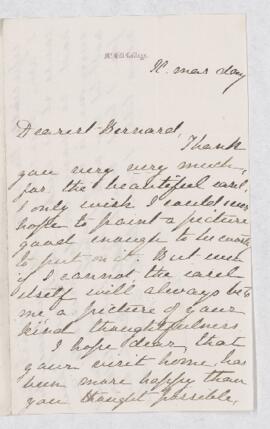 McGill College.
X. mas day
Dearest Bernard,
Thank
you very very much,
for the beautiful easel.
I only wish I could
hope to paint a picture
good enough to be worthy
to put on it. But even
if I cannot the easel
itself will always be to
me a picture of your
kind thoughtfulness.
I hope dear, that
your visit home, has
been more happy than
you thought possible,